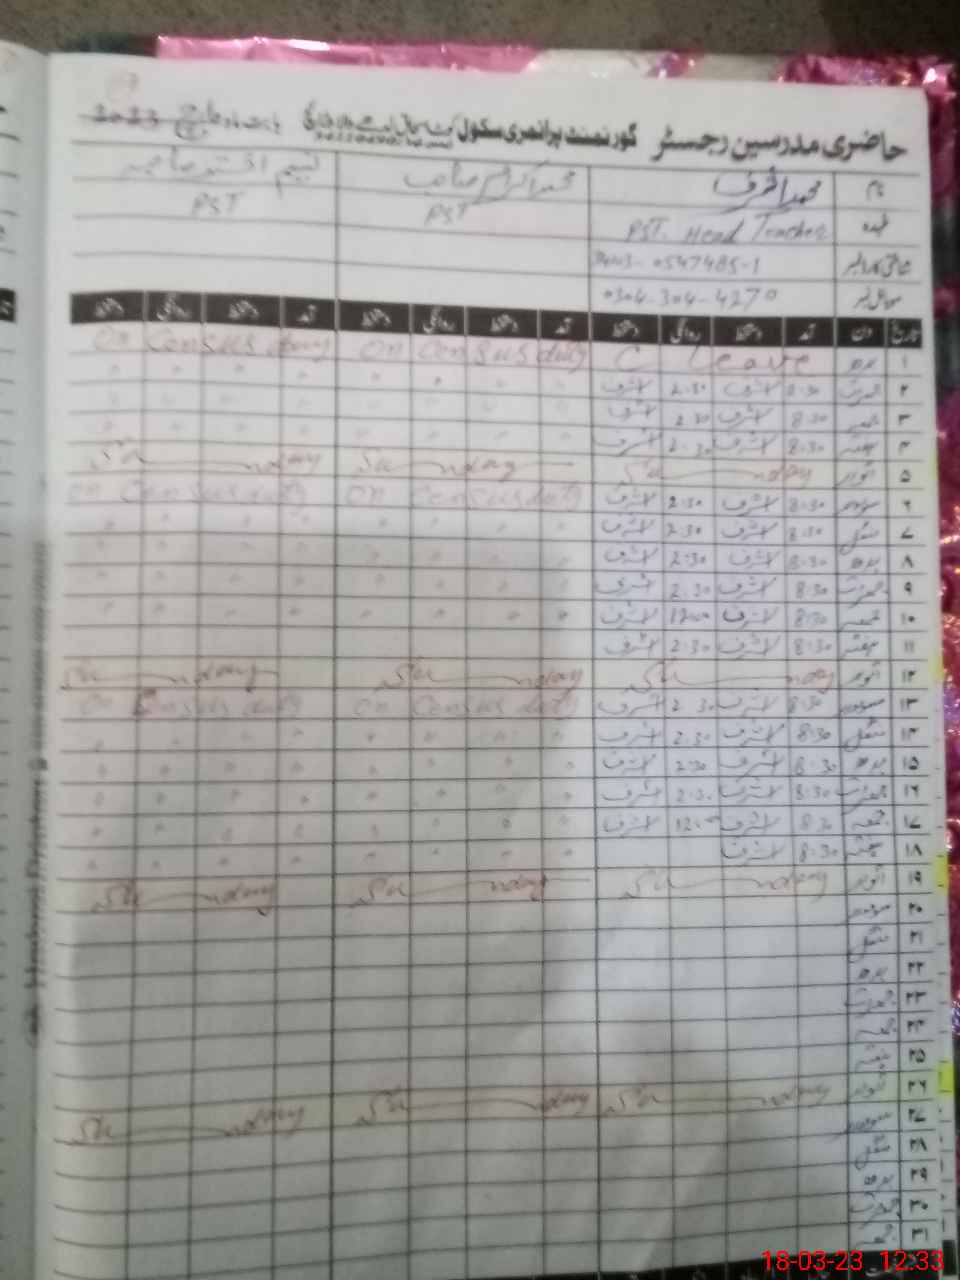 حاضری مدرسین رجسٹر گورنمنٹ پرائمری سکول بابت ماہ مارچ 2023
نام محمد اشرف محمد اکرم صاحب نسیم اختر صاحبہ
عہدہ PST. Head Teacher PST PST
شناختی کارڈ نمبر
موبائل نمبر 0304-304-4270
تاریخ دن آمد دستخط روانگی دستخط آمد دستخط روانگی دستخط آمد دستخط روانگی دستخط
۱ بدھ C Leave on Census duty on Census duty
۲ جمعرات 8:30 اشرف 2:30 اشرف " " " " " " " "
۳ جمعہ 8:30 اشرف 2:30 اشرف " " " " " " " "
۴ ہفتہ 8:30 اشرف 2:30 اشرف " " " " " " " "
۵ اتوار Sunday Sunday Sunday
۶ سوموار 8:30 اشرف 2:30 اشرف on Census duty on Census duty
۷ منگل 8:30 اشرف 2:30 اشرف " " " " " " " "
۸ بدھ 8:30 اشرف 2:30 اشرف " " " " " " " "
۹ جمعرات 8:30 اشرف 2:30 اشرف " " " " " " " "
۱۰ جمعہ 8:30 اشرف 1200 اشرف " " " " " " " "
۱۱ ہفتہ 8:30 اشرف 2:30 اشرف
۱۲ اتوار Sunday Sunday Sunday
۱۳ سوموار 8:30 اشرف 2:30 اشرف on Census duty on Census duty
۱۴ منگل 8:30 اشرف 2:30 اشرف " " " " " " " "
۱۵ بدھ 8:30 اشرف 2:30 اشرف " " " " " " " "
۱۶ جمعرات 8:30 اشرف 2:30 اشرف " " " " " " " "
۱۷ جمعہ 8:30 اشرف 12:00 اشرف " " " " " " " "
۱۸ ہفتہ 8:30 اشرف " " " " " " " "
۱۹ اتوار Sunday Sunday Sunday
۲۰ سوموار
۲۱ منگل
۲۲ بدھ
۲۳ جمعرات
۲۴ جمعہ
۲۵ ہفتہ
۲۶ اتوار Sunday Sunday Sunday
۲۷ سوموار
۲۸ منگل
۲۹ بدھ
۳۰ جمعرات
۳۱ جمعہ
18-03-23 12:33